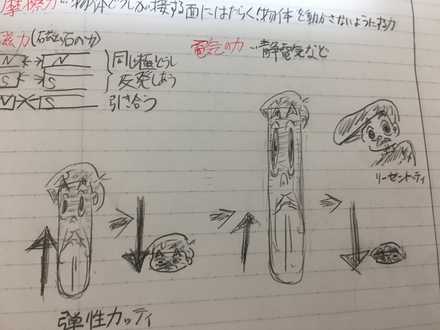 摩擦力…物体どうしの接する面にはたらく(物体を動かさないようにする力
磁力(磁石の力)
N ⇔ N 同じ極どうし
S ⇔ S 反発しあう
N S 引き合う
電気の力…静電気など
リーゼントティ
弾性カッティ